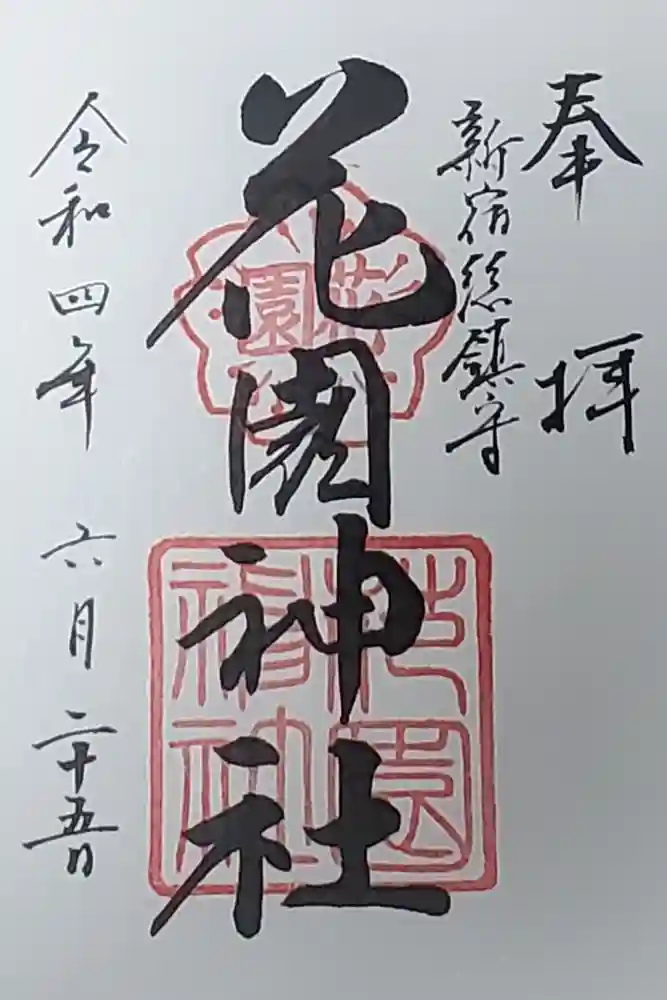 奉拝
新宿総鎮守
花園神社
花園
花園神社
令和四年六月二十五日